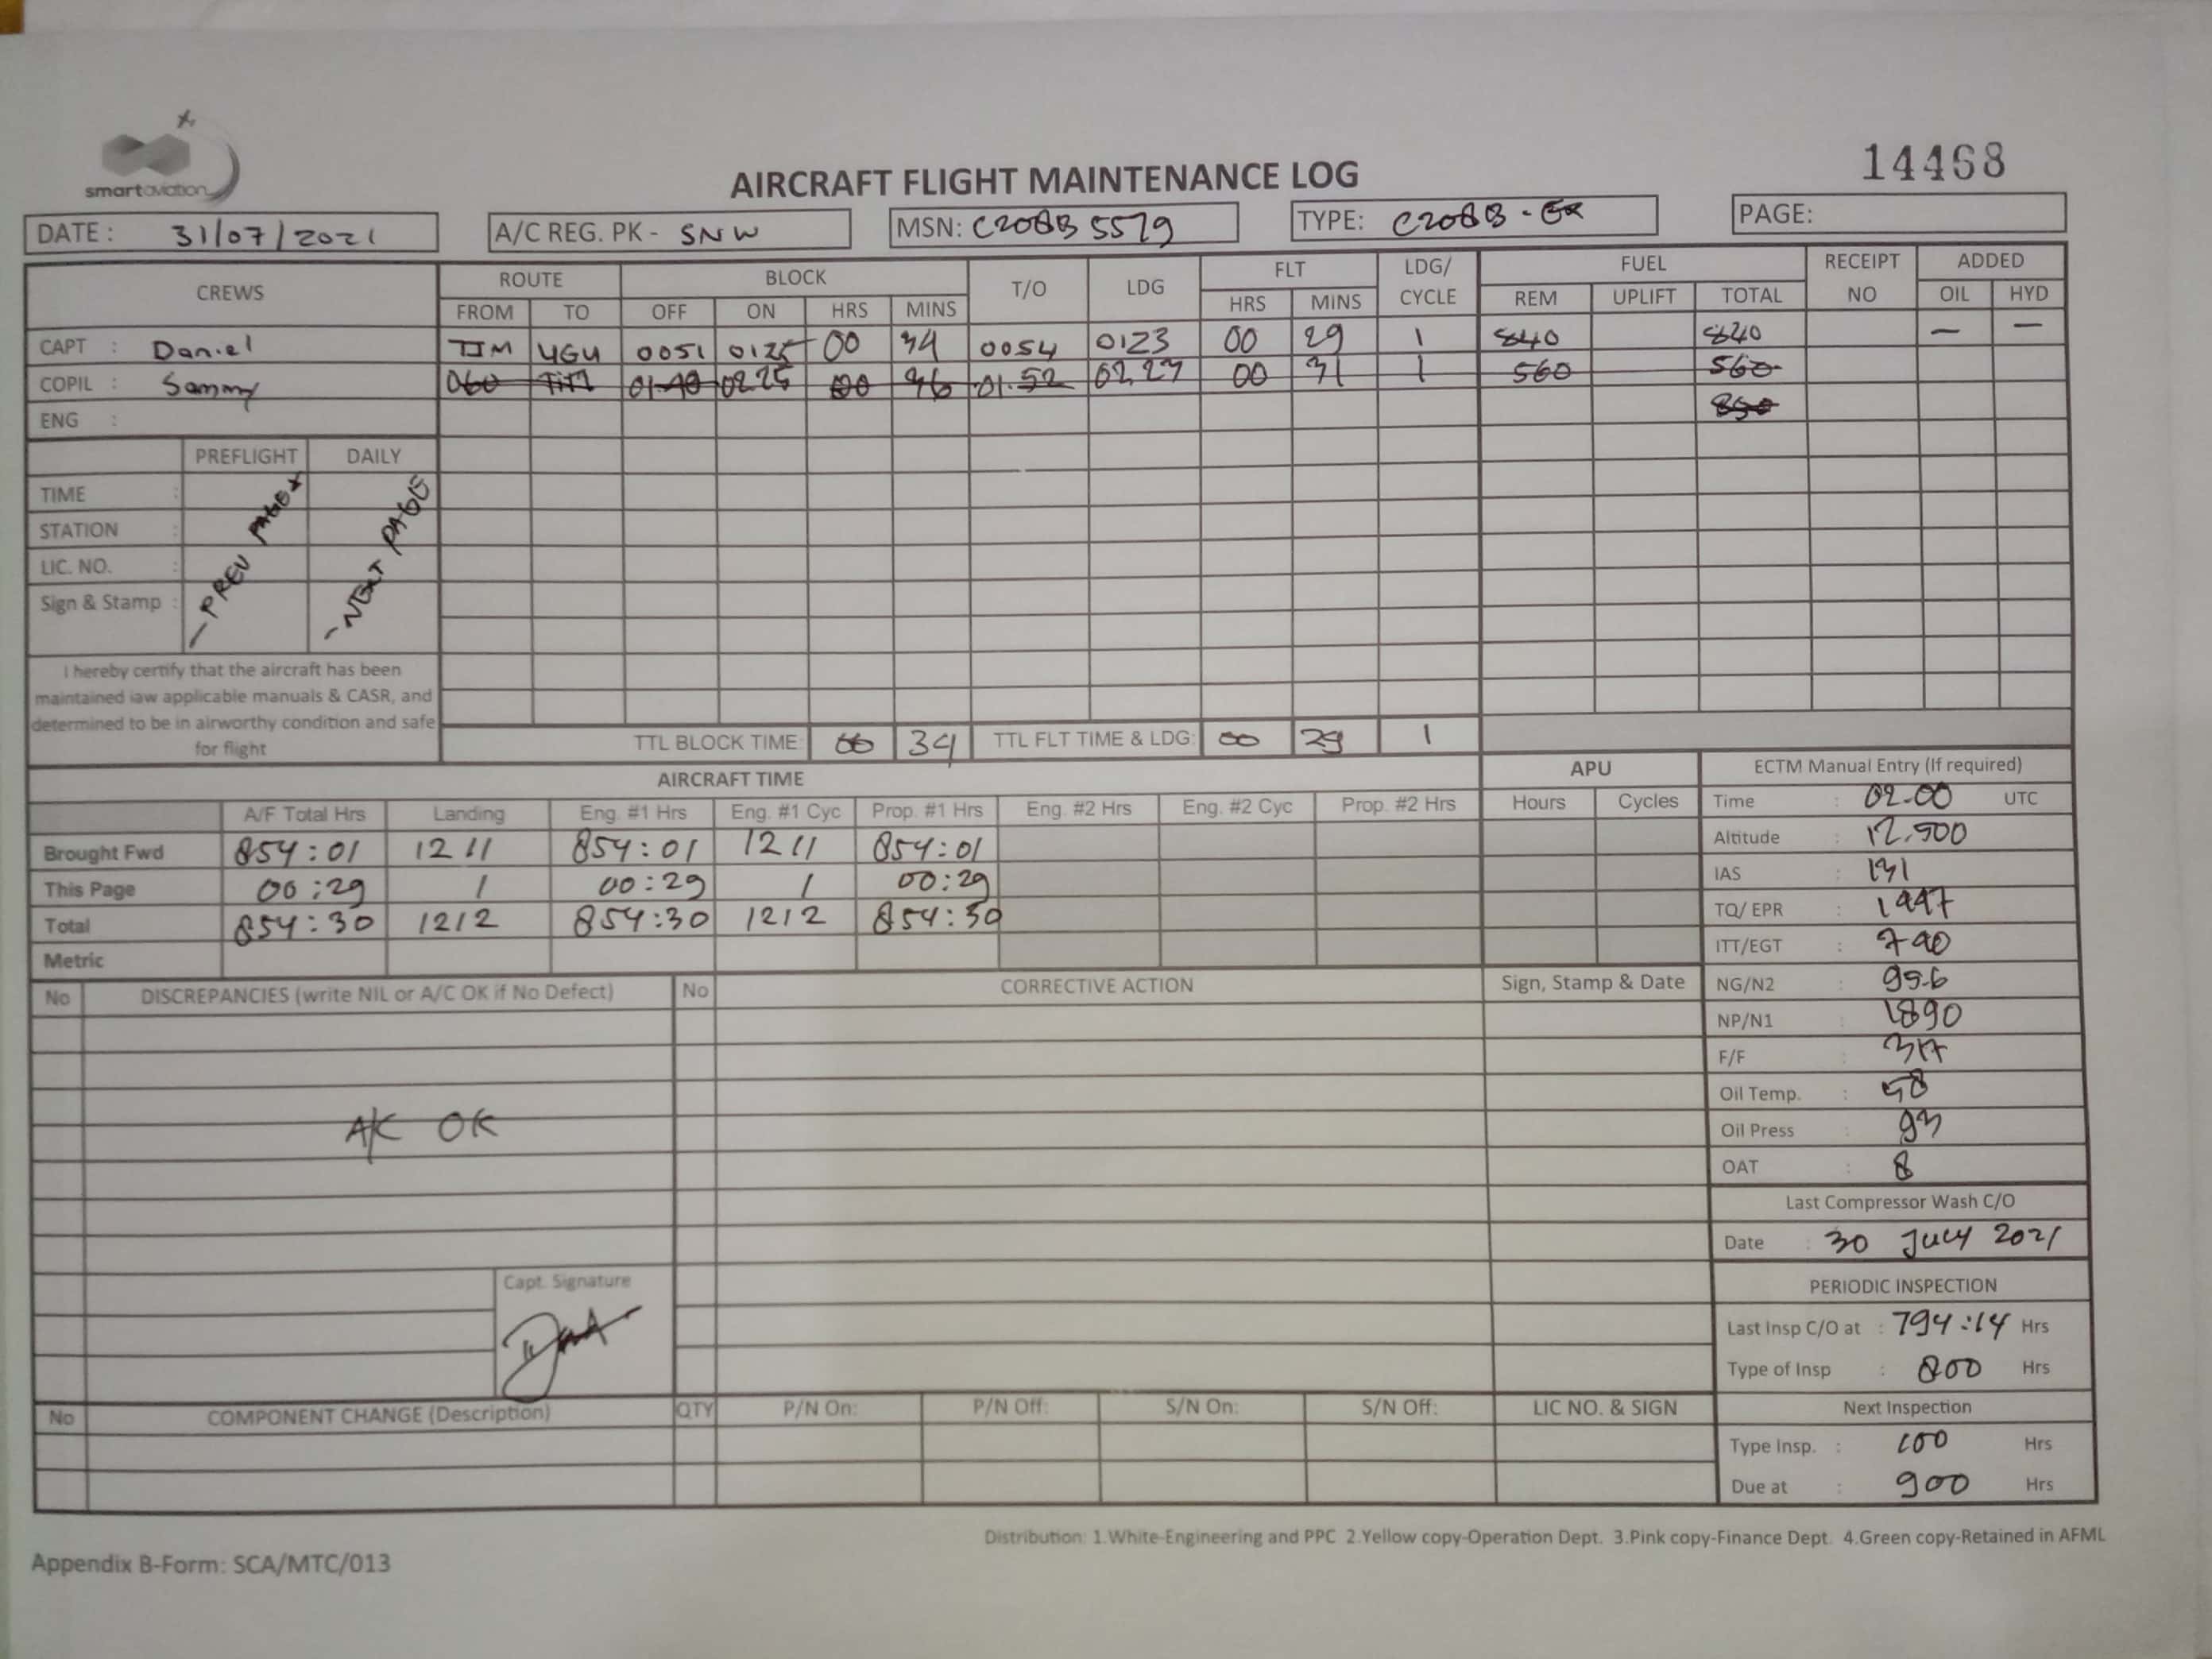 smart aviation
14468
AIRCRAFT FLIGHT MAINTENANCE LOG
DATE : 31/07/2021 A/C REG. PK - SNW MSN: C208B 5579 TYPE: C208B - EX PAGE:
CREWS ROUTE BLOCK T/O LDG FLT LDG/ CYCLE FUEL RECEIPT NO ADDED
FROM TO OFF ON HRS MINS HRS MINS REM UPLIFT TOTAL OIL HYD
CAPT : Daniel TIM UGU 0051 0125 00 34 0054 0123 00 29 1 840 840 — —
COPIL : Sammy 060 TIM 01.40 02.25 00 46 01.52 02.23 00 31 1 560 560
ENG : 850
PREFLIGHT DAILY
TIME :
STATION :
LIC. NO. :
Sign & Stamp :
- PREV PAGE
- NEXT PAGE
I hereby certify that the aircraft has been
maintained iaw applicable manuals & CASR, and
determined to be in airworthy condition and safe
for flight
TTL BLOCK TIME: 00 34 TTL FLT TIME & LDG: 00 29 1
AIRCRAFT TIME APU ECTM Manual Entry (If required)
A/F Total Hrs Landing Eng. #1 Hrs Eng. #1 Cyc Prop. #1 Hrs Eng. #2 Hrs Eng. #2 Cyc Prop. #2 Hrs Hours Cycles
Brought Fwd 854:01 1211 854:01 1211 854:01
This Page 00:29 1 00:29 1 00:29
Total 854:30 1212 854:30 1212 854:30
Metric
Time : 02-00 UTC
Altitude : 12.500
IAS : 131
TQ/ EPR : 1447
ITT/EGT : 740
NG/N2 : 99.6
NP/N1 : 1890
F/F : 317
Oil Temp. : 58
Oil Press : 93
OAT : 8
Last Compressor Wash C/O
Date : 30 July 2021
PERIODIC INSPECTION
Last Insp C/O at : 794:14 Hrs
Type of Insp : 800 Hrs
Next Inspection
Type Insp. : 100 Hrs
Due at : 900 Hrs
No DISCREPANCIES (write NIL or A/C OK if No Defect) No CORRECTIVE ACTION Sign, Stamp & Date
A/C OK
Capt. Signature
No COMPONENT CHANGE (Description) QTY P/N On: P/N Off: S/N On: S/N Off: LIC NO. & SIGN
Distribution: 1.White-Engineering and PPC 2.Yellow copy-Operation Dept. 3.Pink copy-Finance Dept. 4.Green copy-Retained in AFML
Appendix B-Form: SCA/MTC/013